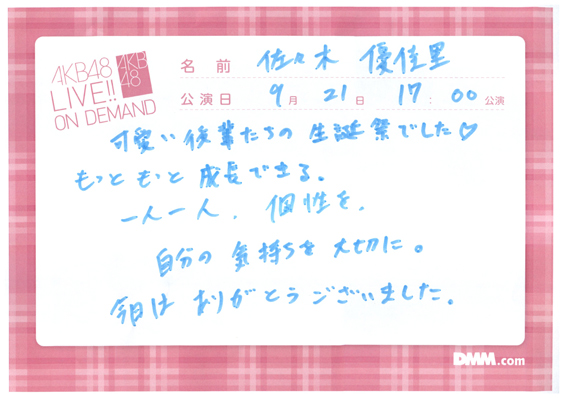 AKB48
LIVE!!
ON DEMAND
AKB
48
名前 佐々木 優佳里
公演日 9月21日 17:00公演
可愛い後輩たちの生誕祭でした♡
もっともっと成長できる。
一人一人、個性を、
自分の気持ちを大切に。
今日はありがとうございました。
DMM.com